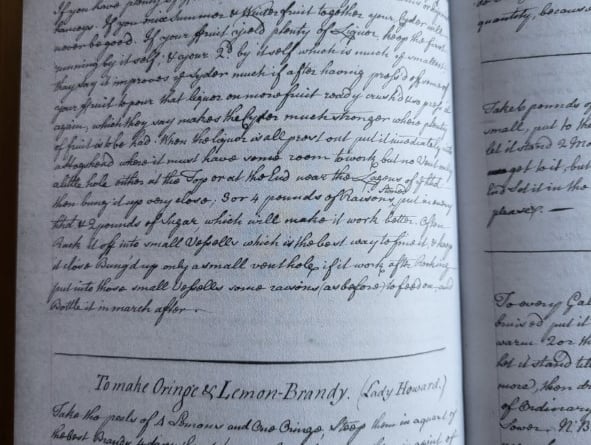 If you have plenty of
hanoys. If you mix Summer & Winter fruit together your Cyder will
never be good. If your fruit yeild plenty of Liquor, keep the first
running by it self; & your 2d. by it self which is much ye smallest:
they say it improves ye Cyder much if after having press'd off some of
your fruit to pour that liquor on more fruit ready crush'd & so press it
again, which they say makes the Cyder much stronger where plenty
of fruit is to be had. When the liquor is all prest out put it imediately into
a Hogshead where it must have some room to work but no Vent only
a little hole either at the Top or at the End near the Lagens of it
stand
then bung it up very close; 3 or 4 pounds of Raisons put in every
& 2 pounds of Sugar which will make it work better. Often
Rack it off into small Vessells which is the best way to fine it & keep
it close Bung'd up only a small vent hole if it work after Racking
put into those small Vessells some raisons (as before) to feed on, and
Bottle it in march after.
To make Oringe & Lemon-Brandy. (Lady Howard.)
Take the peels of 4 Lemons and One Oringe, Steep them in a quart of
the best Brandy
quantity, because
Take 6 pounds of
small, put to th
let it stand 2 Mo
get to it, but
End sold it in the
please.
To every Gal
bruised put it
warm 2 or th
let it stand till
more), then dr
of Ordinary
Lower. N.B